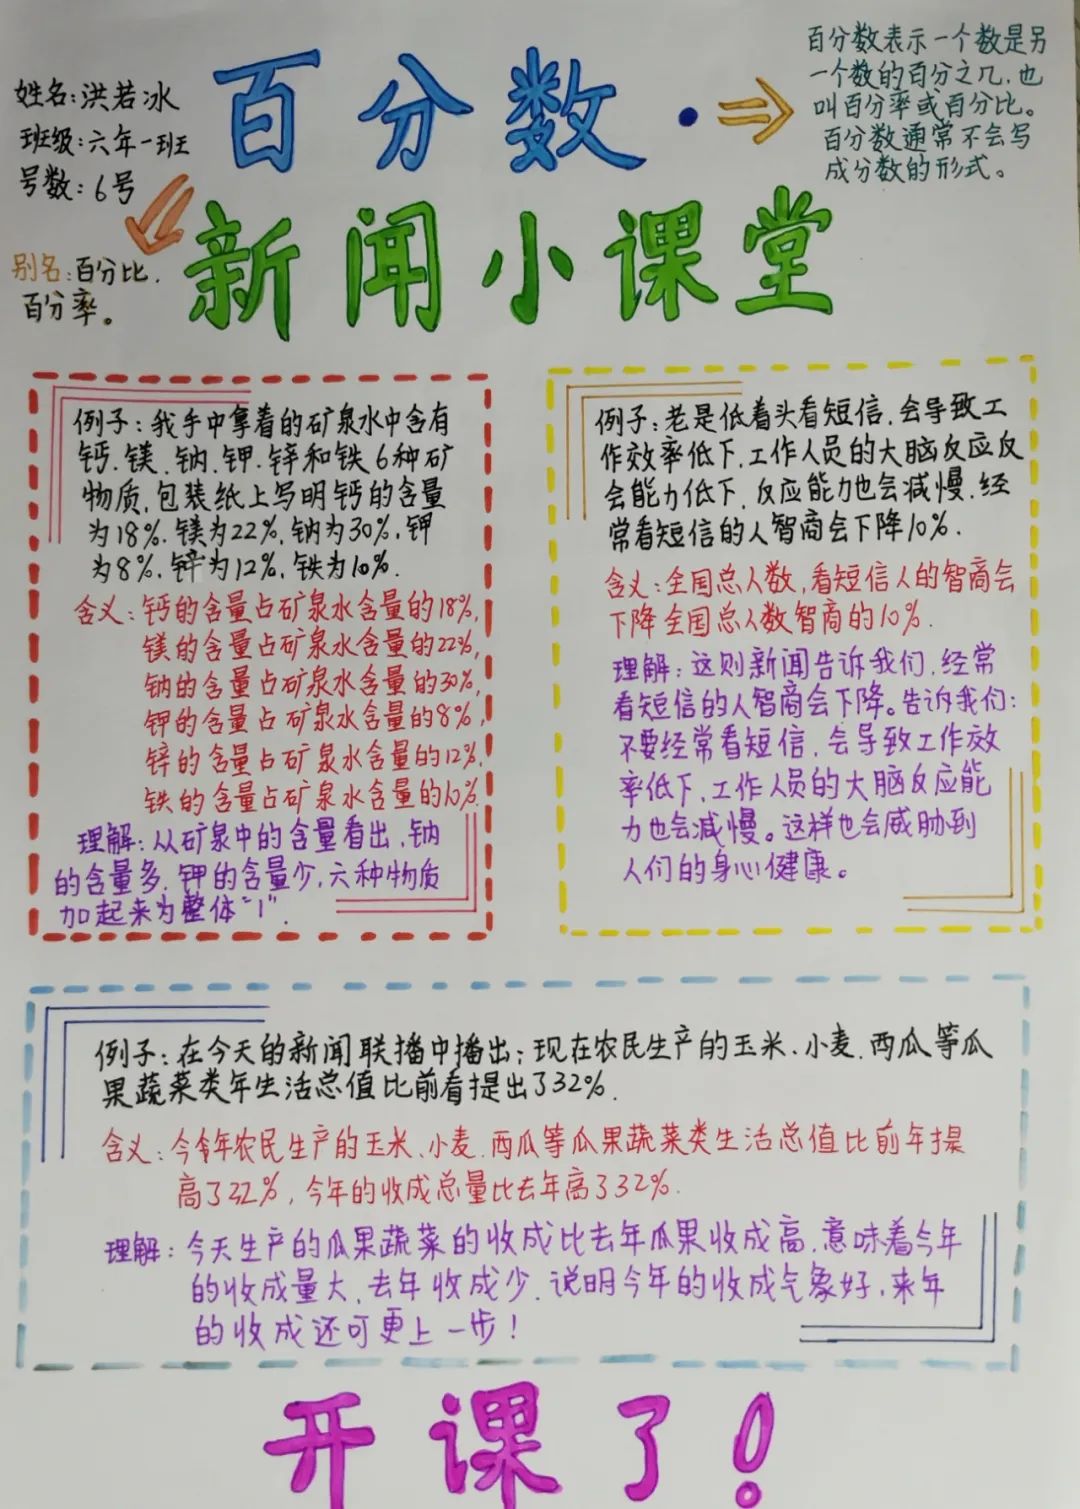 姓名:洪若冰
班级:六年一班
号数:6号
百分数·
百分数表示一个数是另
一个数的百分之几,也
叫百分率或百分比。
百分数通常不会写
成分数的形式。
新闻小课堂
别名:百分比.
百分率。
例子:我手中拿着的矿泉水中含有
钙.镁.钠.钾.锌和铁6种矿
物质,包装纸上写明钙的含量
为18%.镁为22%,钠为30%,钾
为8%,锌为12%,铁为10%.
含义:钙的含量占矿泉水含量的18%,
镁的含量占矿泉水含量的22%,
钠的含量占矿泉水含量的30%,
钾的含量占矿泉水含量的8%,
锌的含量占矿泉水含量的12%,
铁的含量占矿泉水含量的10%.
理解:从矿泉中的含量看出,钠
的含量多,钾的含量少,六种物质
加起来为整体"1".
例子:老是低着头看短信,会导致工
作效率低下,工作人员的大脑反应反
会能力低下,反应能力也会减慢,经
常看短信的人智商会下降10%.
含义:全国总人数,看短信人的智商会
下降全国总人数智商的10%.
理解:这则新闻告诉我们,经常
看短信的人智商会下降。告诉我们:
不要经常看短信,会导致工作效
率低下,工作人员的大脑反应能
力也会减慢。这样也会威胁到
人们的身心健康。
例子:在今天的新闻联播中播出:现在农民生产的玉米、小麦.西瓜等瓜
果蔬菜类年生活总值比前看提出了32%.
含义:今年农民生产的玉米、小麦.西瓜等瓜果蔬菜类生活总值比前年提
高了32%,今年的收成总量比去年高了32%.
理解:今天生产的瓜果蔬菜的收成比去年瓜果收成高,意味着今年
的收成量大,去年收成少.说明今年的收成气象好,来年
的收成还可更上一步!
开课了!